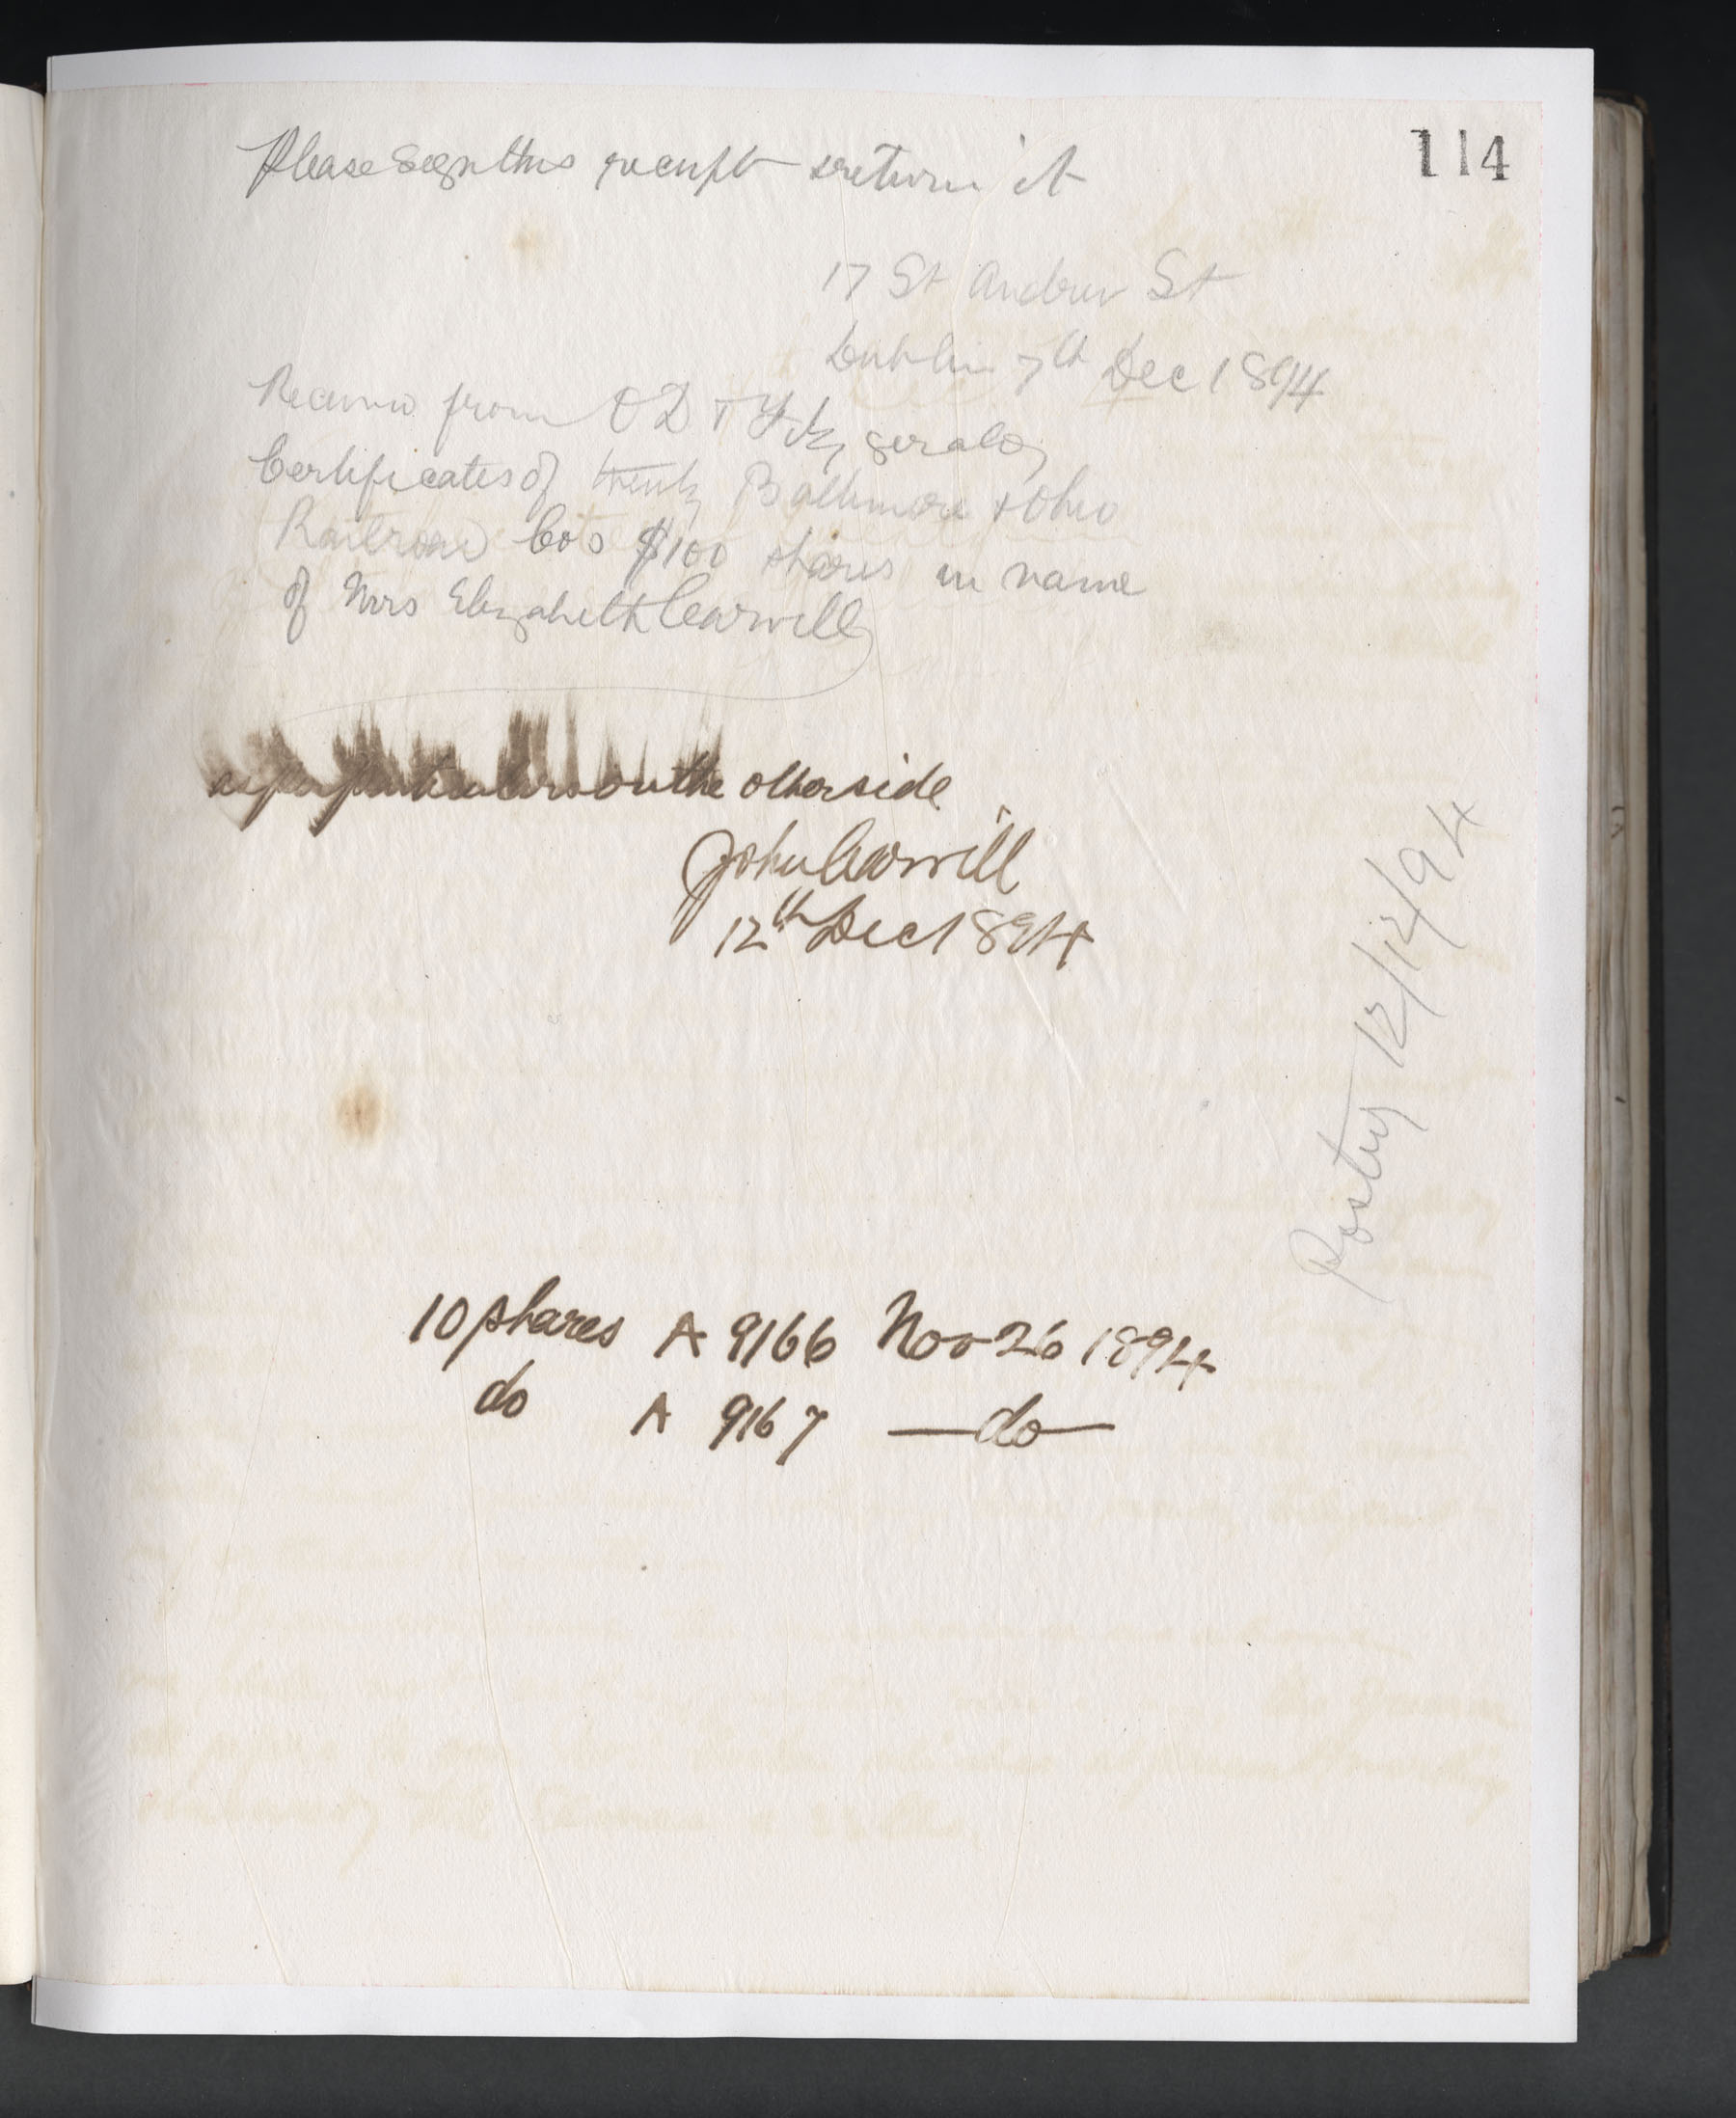 114
Please sign this receipt & return it
17 St Andrew St
Dublin 7th Dec 1894
Received from O D & T Fitzgerald
Certificates of twenty Baltimore & Ohio
Railroad Cos $100 shares in name
of Mrs Elizabeth Carvill
as per particulars on the other side
John Carvill
12th Dec 1894
Posting 12/12/94
10 shares A 9166 Nov 26 1894
do A 9167 —do—